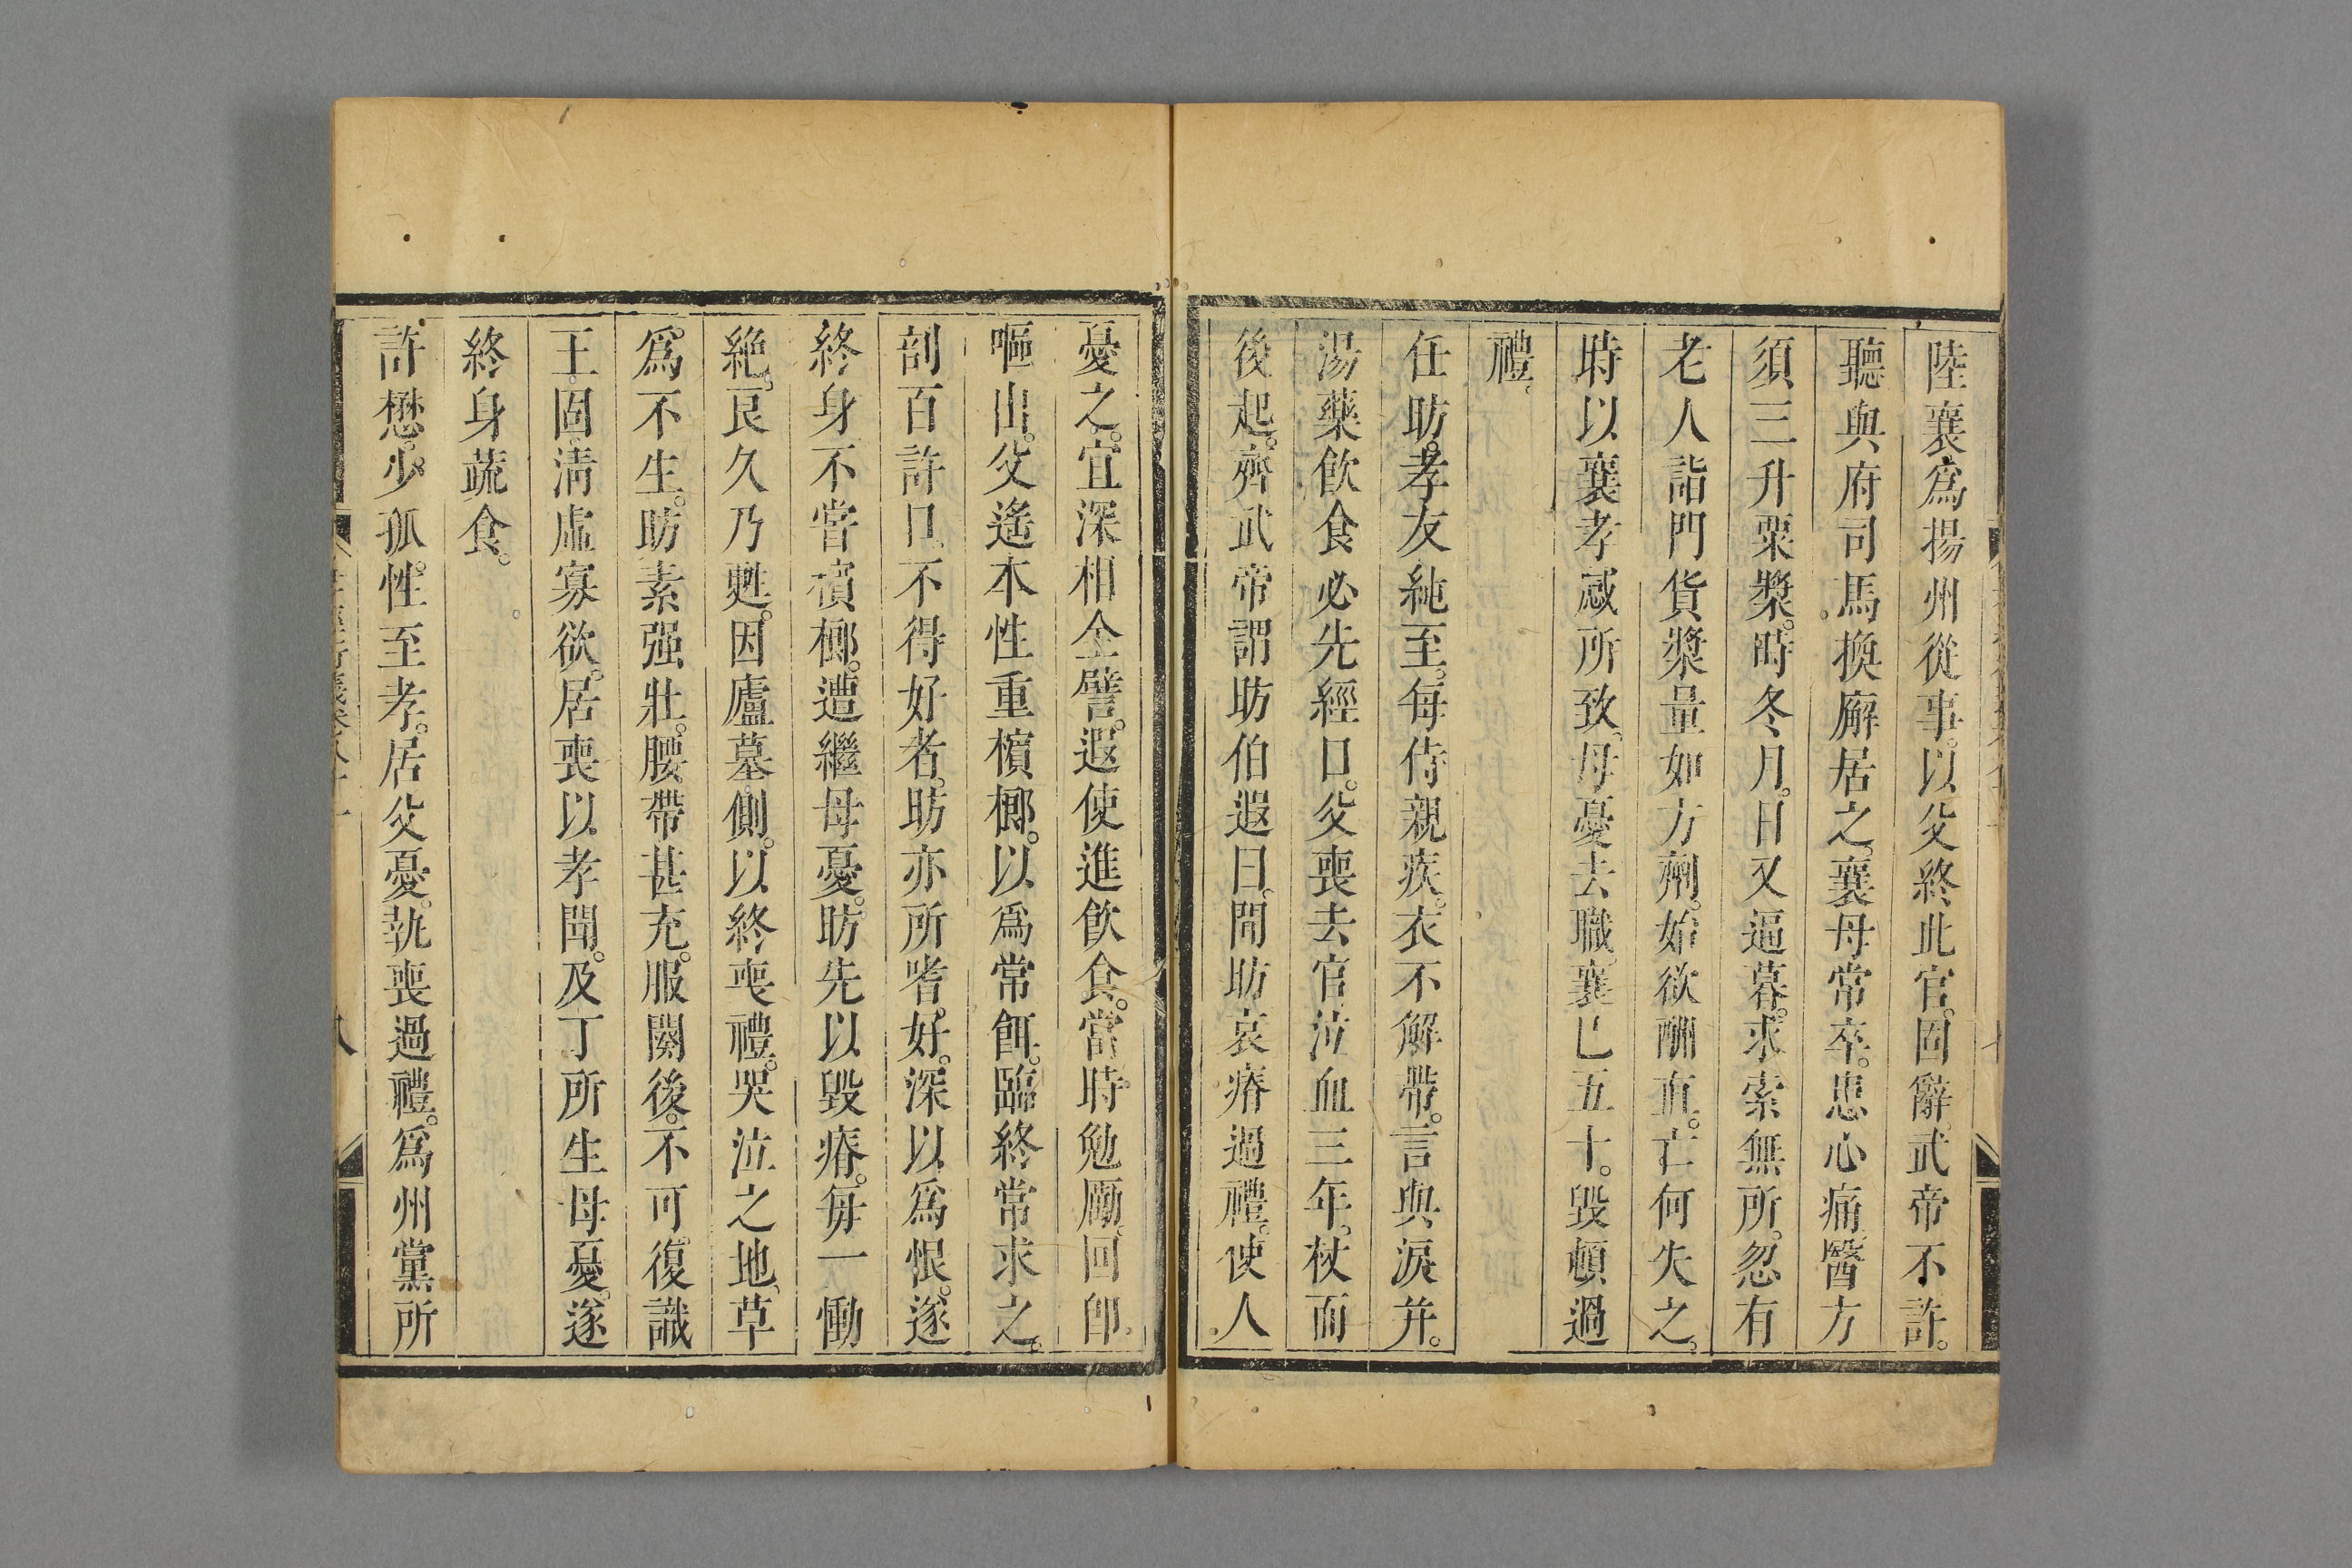 陸襄爲揚州從事。以父終此官。固辭。武帝不許。
聽與府司馬換廨居之。襄母常卒。患心痛。醫方
須三升粟漿。時冬月。日又逼暮。求索無所。忽有
老人詣門貨漿量如方劑。始欲酬直。亡何失之。
時以襄孝感所致。母憂去職。襄已五十。毀頓過
禮。
任昉。孝友純至。每侍親疾。衣不解帶。言與淚并。
湯藥飲食必先經口。父喪去官泣血三年。杖而
後起。齊武帝謂昉伯遐曰。聞昉哀瘠過禮。使人
憂之。宜深相全譬。遐使進飲食。當時勉勵。回卽
嘔出。父遙本性重檳榔。以爲常餌。臨終常求之。
剖百許口。不得好者。昉亦所嗜好。深以爲恨。遂
終身不嘗檳榔。遭繼母憂。昉先以毀瘠。每一慟
絕。良久乃甦。因廬墓側。以終喪禮。哭泣之地。草
爲不生。昉素强壯。腰帶甚充。服闋後。不可復識
王固。淸虛寡欲。居喪以孝聞。及丁所生母憂。遂
終身蔬食。
許懋。少孤。性至孝。居父憂。執喪過禮。爲州黨所
八